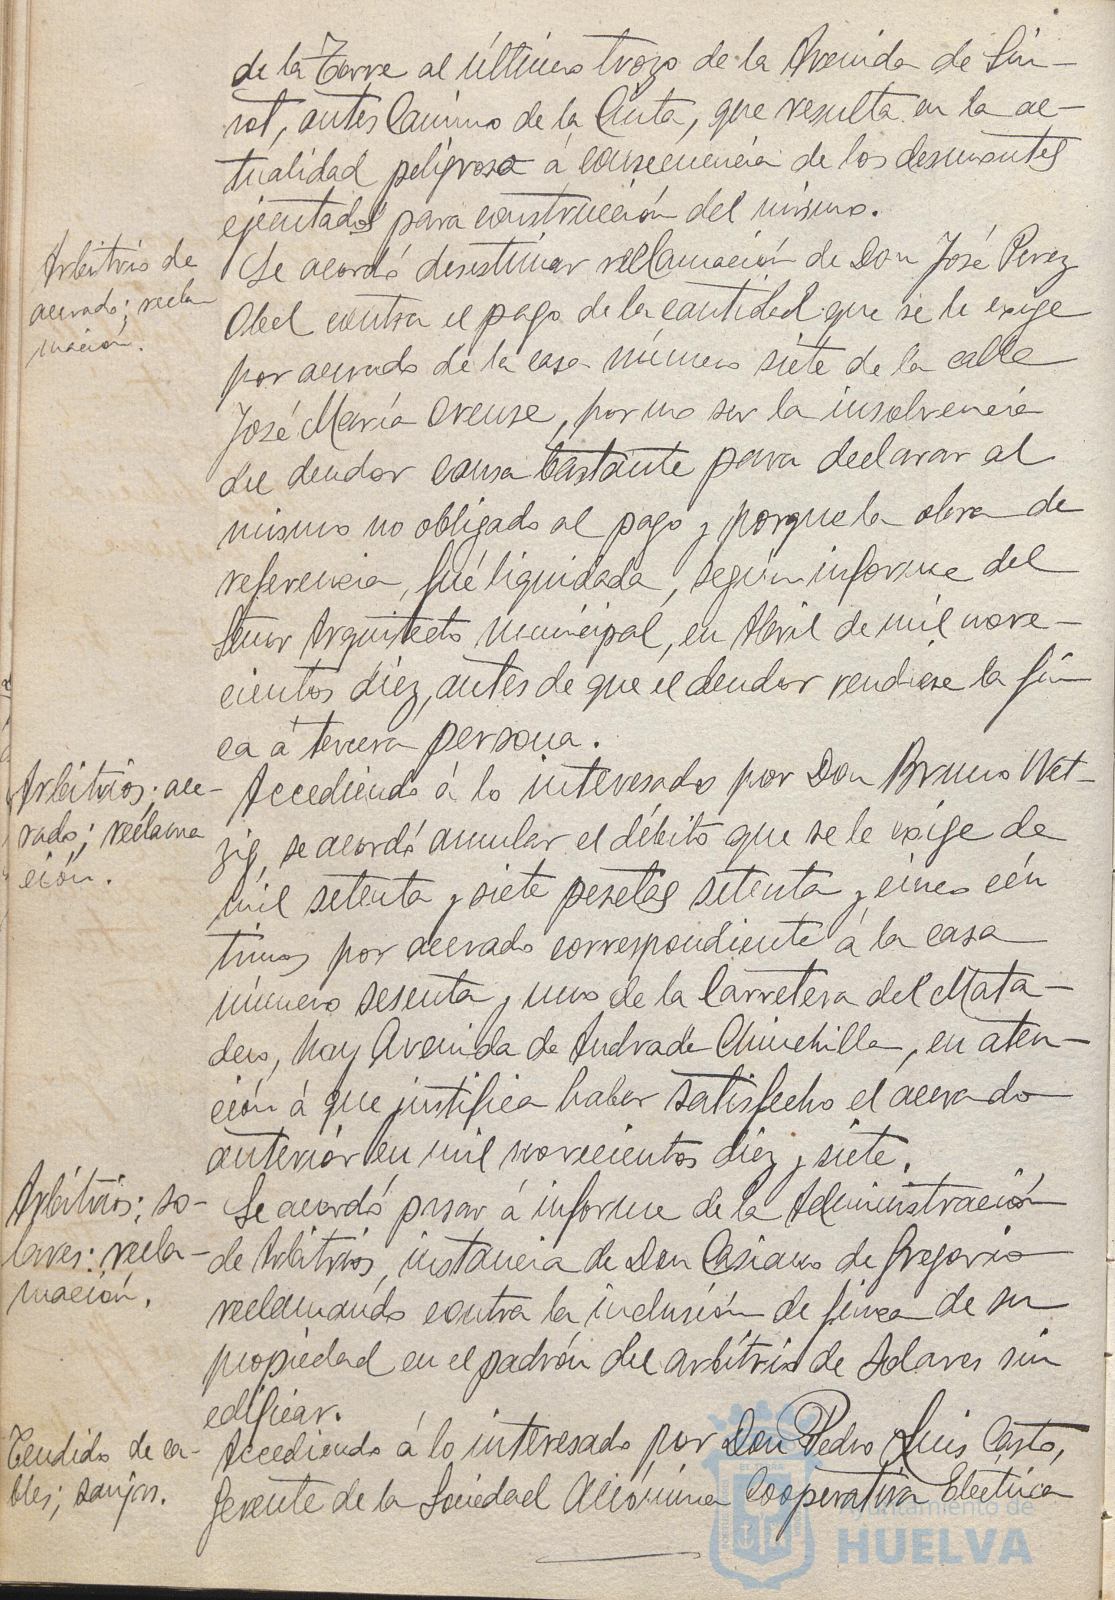 de la Torre al último trozo de la Avenida de Sin-
rot, antes Camino de la Cinta, que resulta en la ac-
tualidad peligroso á consecuencia de los desmontes
ejecutados para construcción del mismo.
Arbitrio de
acerado; recla
mación.
Se acordó desestimar reclamación de Don José Perez
Abel contra el pago de la cantidad que se le exige
por acerado de la casa número siete de la calle
José María Orense, por no ser la insolvencia
del deudor causa bastante para declarar al
mismo no obligado al pago y porque la obra de
referencia, fué liquidada, según informe del
Señor Arquitecto municipal, en Abril de mil nove-
cientos diez, antes de que el deudor vendiese la fin
ca á tercera persona.
Arbitrios; ace-
rado; reclama
ción.
Accediendo á lo interesado por Don Bruno Wet-
zig, se acordó anular el débito que se le exige de
mil setenta y siete pesetas setenta y cinco cén
timos por acerado correspondiente á la casa
número sesenta y uno de la Carretera del Mata-
dero, hoy Avenida de Andrade Chinchilla, en aten-
ción á que justifica haber satisfecho el acerado
anterior en mil novecientos diez y siete.
Arbitrios; so-
lares: recla-
mación.
Se acordó pasar á informe de la Administración
de Arbitrios, instancia de Don Casiano de Gregorio
reclamando contra la inclusión de finca de su
propiedad en el padrón del arbitrio de Solares sin
edificar.
Tendido de ca-
bles; zanjas.
Accediendo á lo interesado por Don Pedro Luis Casto,
Gerente de la Sociedad Anónima Cooperativa Eléctrica
Ayuntamiento de
HUELVA